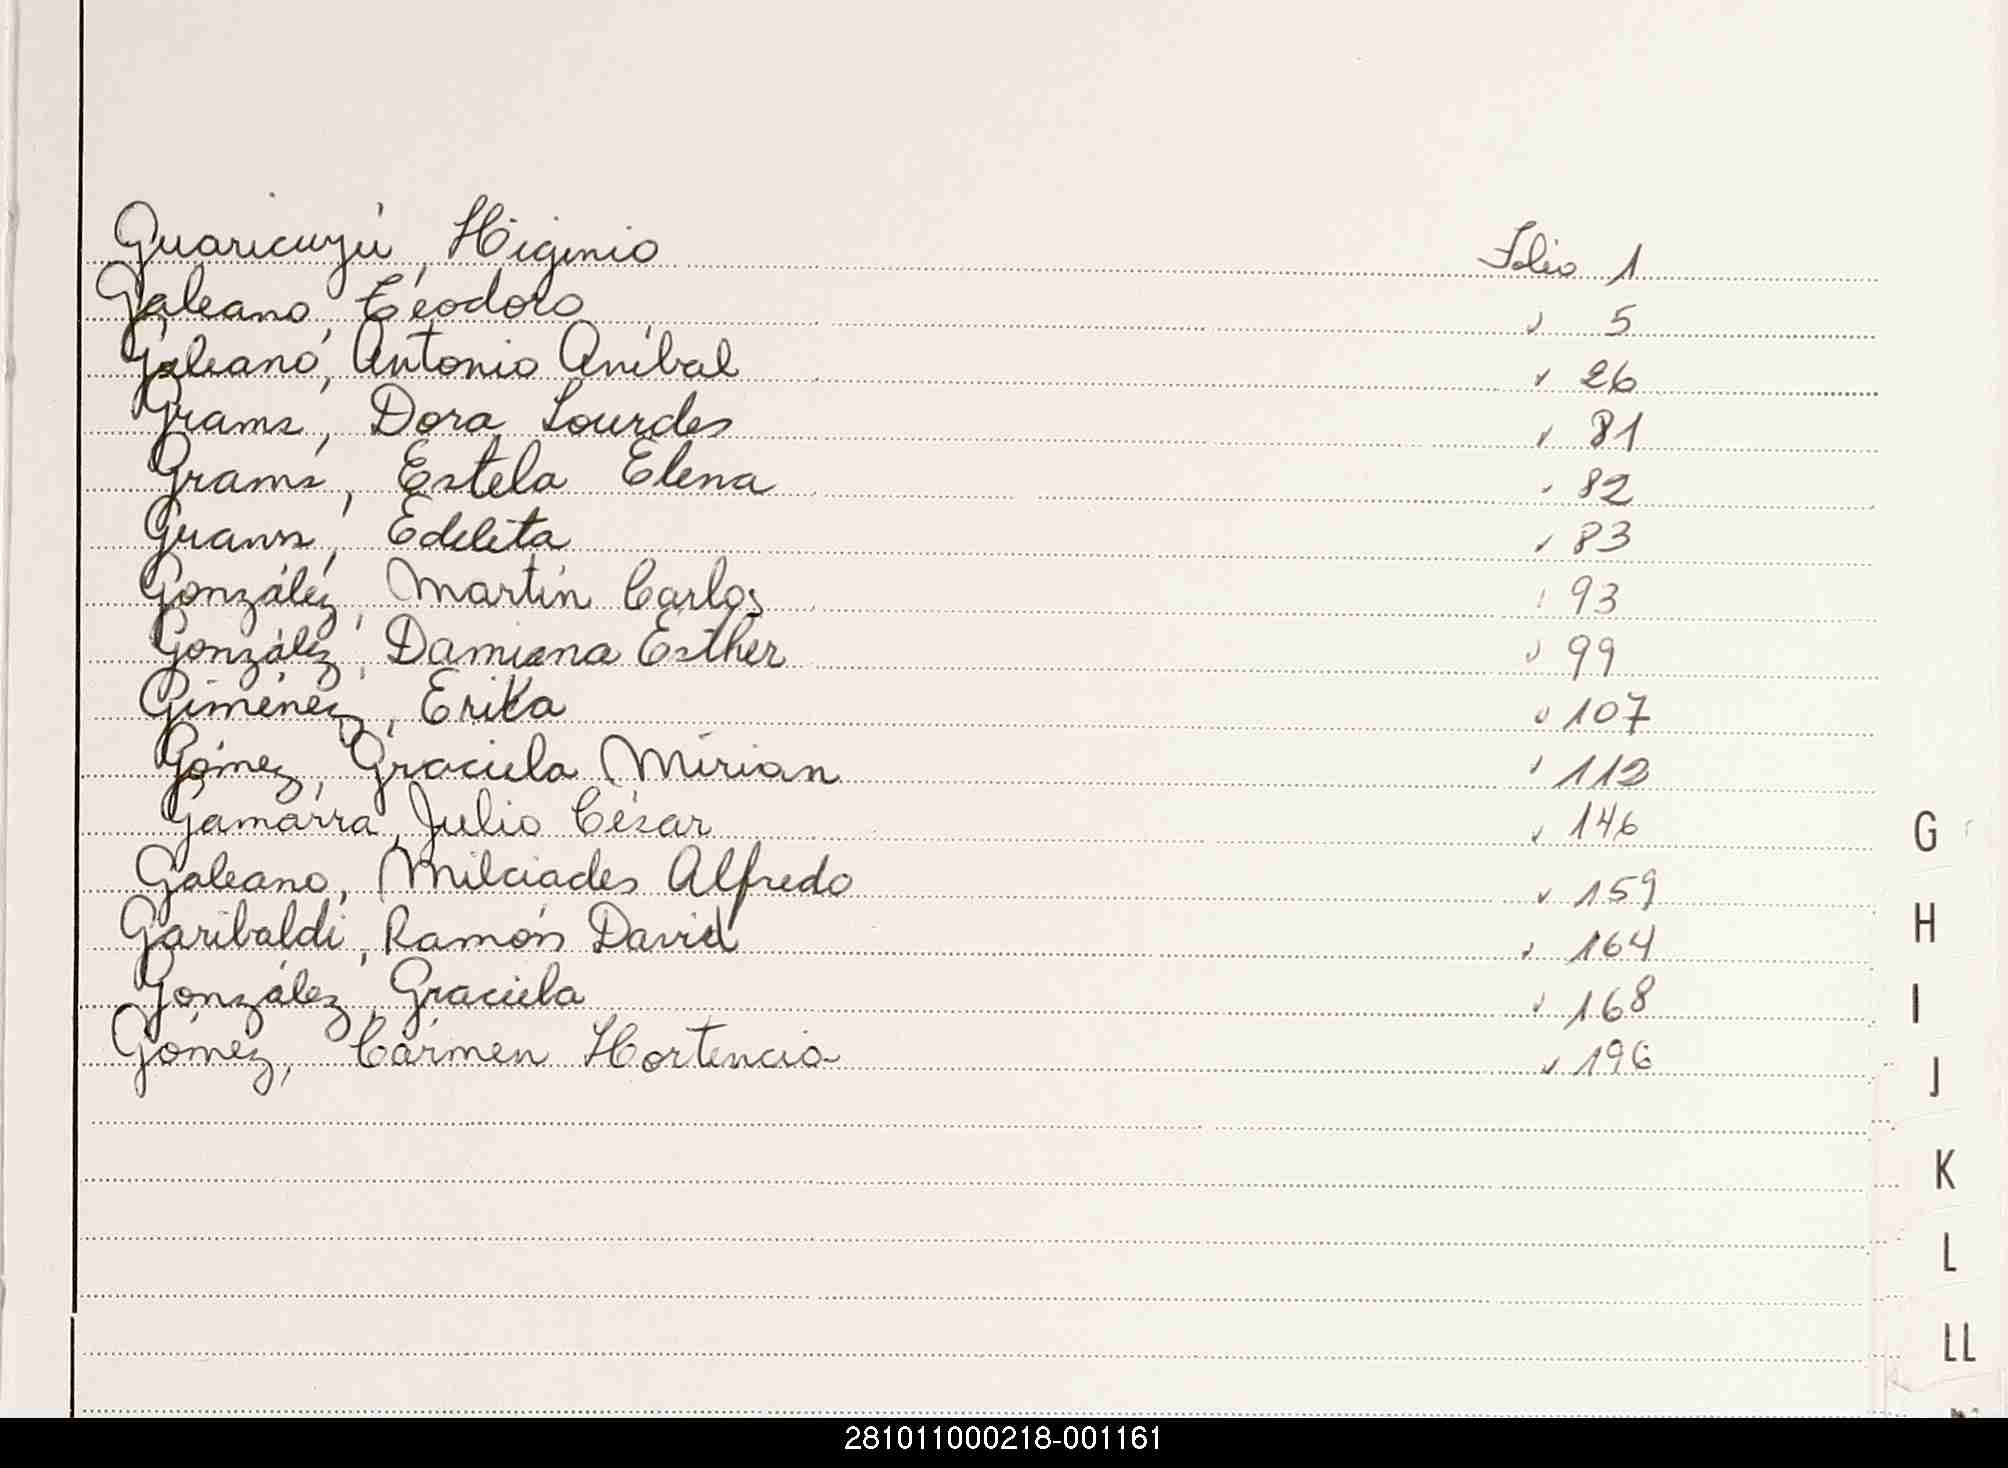 Guaricuyú, Higinio Folio 1
Galeano, Teodoro " 5
Galeano, Antonio Aníbal " 26
Grams, Dora Lourdes " 81
Grams, Estela Elena " 82
Grams, Edelita " 83
González, Martín Carlos " 93
González, Damiana Esther " 99
Giménez, Erika " 107
Gómez, Graciela Mirian " 112
Gamarra, Julio César " 146
Galeano, Milciades Alfredo " 159
Garibaldi, Ramón David " 164
González, Graciela " 168
Gómez, Cármen Hortencia " 196
G
H
I
J
K
L
LL
281011000218-001161